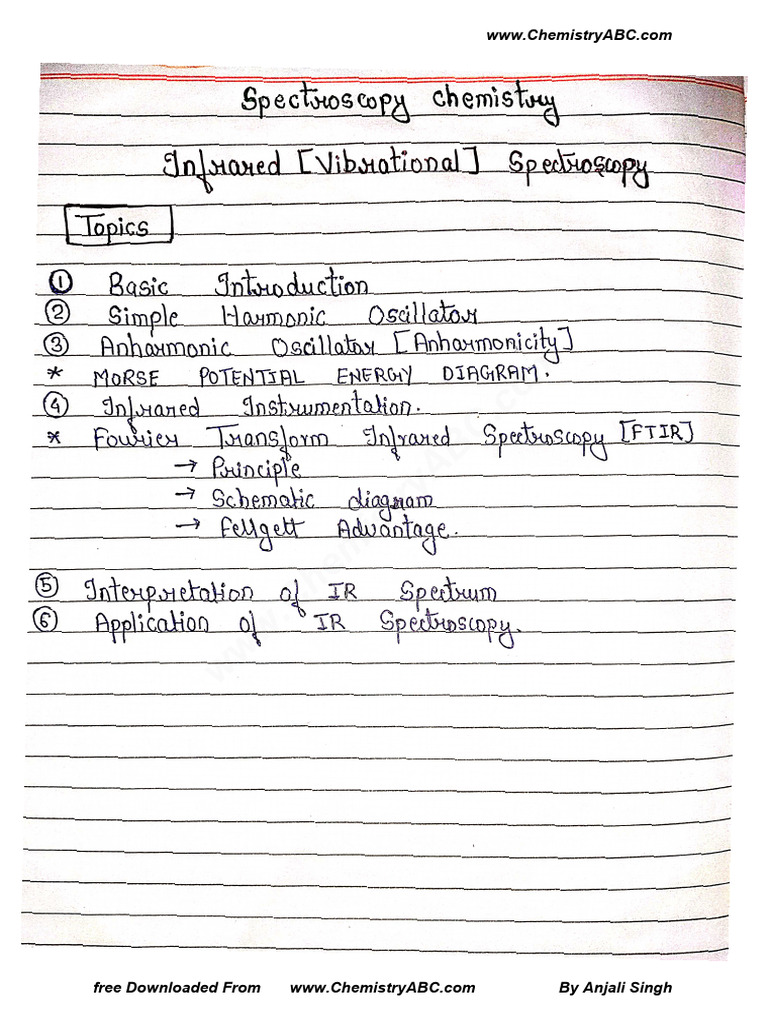 www.ChemistryABC.com
Spectroscopy chemistry
Infrared [Vibrational] Spectroscopy
Topics
① Basic Introduction
② Simple Harmonic Oscillator
③ Anharmonic Oscillator [Anharmonicity]
* MORSE POTENTIAL ENERGY DIAGRAM.
④ Infrared Instrumentation.
* Fourier Transform Infrared Spectroscopy [FTIR]
→ Principle
→ Schematic diagram
→ Fellgett Advantage.
⑤ Interpretation of IR Spectrum
⑥ Application of IR Spectroscopy.
free Downloaded From www.ChemistryABC.com By Anjali Singh